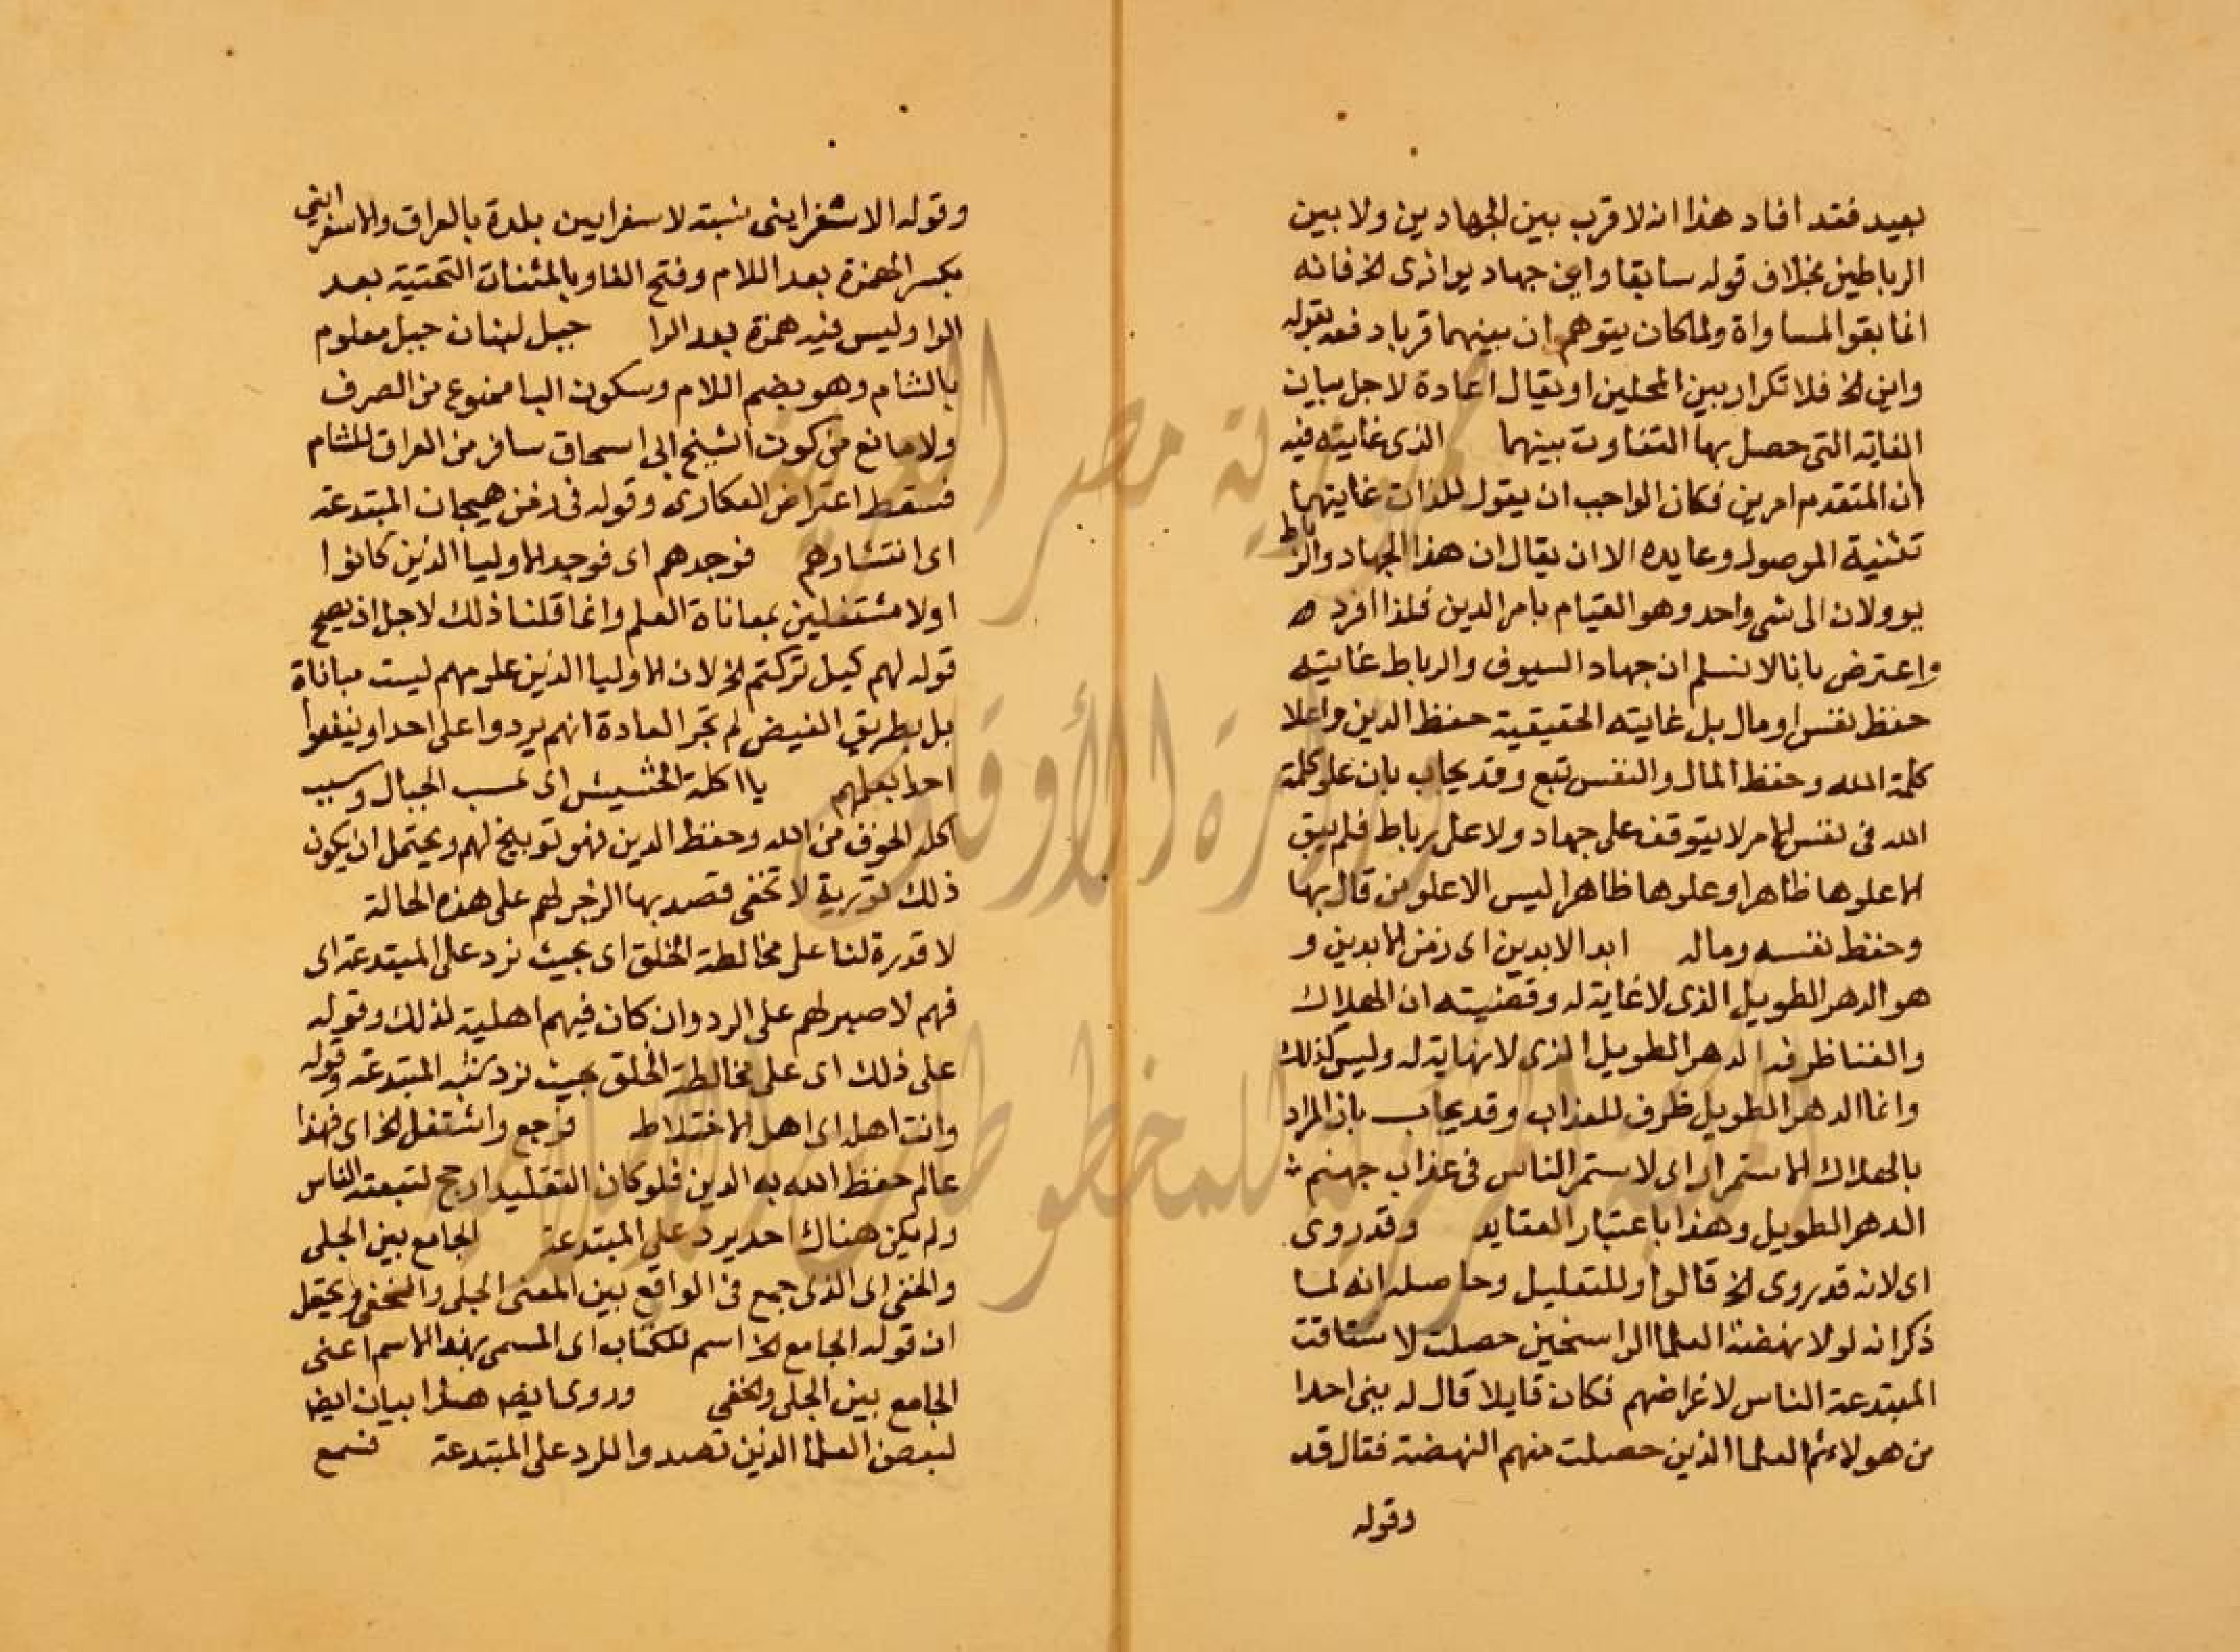 بعيد فقد افاد هذا انه لا قرب بين الجهادين ولا بين
الرباطين بخلاف قوله سابقا واين جهاد يوازى الخ فانه
انما بقوا المساواة ولما كان يتوهم ان بينهما قربا دفعه بقوله
واين الخ فلا تكرار بين المحلين او يقال اعادة لاجل بيان
الغاية التى حصل بها التفاوت بينهما الذى غايته فيه
ان المتقدم امرين فكان الواجب ان يقول للذات غايتهما
تثنية الموصول وعايده الا ان يقال ان هذا الجهاد والرباط
يوولان الى شى واحد وهو القيام بامر الدين فلذا افرد ه
واعترض بانا لا نسلم ان جهاد السيوف والرباط غايته
حفظ نفس او مال بل غايته الحقيقية حفظ الدين واعلا
كلمة الله وحفظ المال والنفس تبع وقد يجاب بان علو كلمة
الله فى نفس الامر لا يتوقف على جهاد ولا على رباط فلم يبق
الا علوها ظاهرا وعلوها ظاهرا ليس الا علو من قال بها
وحفظ نفسه وماله ابد الابدين اى زمن الابدين و
هو الدهر الطويل الذى لا غاية له وقضيته ان الهلاك
والفنا ظرفه الدهر الطويل الذى لا نهاية له وليس كذلك
وانما الدهر الطويل ظرف للعذاب وقد يجاب بان المراد
بالهلاك الاستمرار اى لاستمر الناس فى عذاب جهنم
الدهر الطويل وهذا باعتبار العقايد وقد روى
اى لانه قد روى الخ قالوا وللتعليل وحاصله انه لما
ذكر انه لولا نهضة العلما الراسخين حصلت لاستاقت
المبتدعة الناس لاغراضهم فكان قايلا قال له بينى احدا
من هولاء ثم العلما الذين حصلت منهم النهضة فقال قد
وقوله
وقوله الاسفراينى نسبة لاسفرايين بلدة بالعراق والاسفراينى
بكسر الهمزة بعد اللام وفتح الفا وبالمثنات التحتية بعد
الرا وليس فيه همزة بعد الرا جبل لبنان جبل معلوم
بالشام وهو بضم اللام وسكون البا ممنوع من الصرف
ولا مانع من كون الشيخ ابى اسحاق سافر من العراق للشام
فسقط اعتراض العكارى وقوله فى زمن هيجان المبتدعة
اى انتشارهم فوجدهم اى فوجد الاوليا الذين كانوا
اولا مشتغلين بمعاناة العلم وانما قلنا ذلك لاجل ان يصح
قوله لهم كيف تركتم الخ لان الاوليا الذين علومهم ليست مباناة
بل بطريق الفيض لم تجر العادة انهم يردوا على احد او ينفعوا
احدا بعلمهم يا اكلة الحشيش اى عسب الجبال وسبب
اكله الخوف من الله وحفظ الدين فهو توبيخ لهم ويحتمل ان يكون
ذلك تورية لا تخفى قصد بها الزجر لهم على هذه الحالة
لا قدرة لنا على مخالطة الخلق اى بحيث نرد على المبتدعة اى
فهم لا صبر لهم على الرد وان كان فيهم اهلية لذلك وقوله
على ذلك اى على مخالطة الخلق بحيث نرد شبه المبتدعة وقوله
وانت اهله اى اهل الاختلاط فرجع واشتغل الخ اى فهذا
عالم حفظ الله به الدين فلو كان التقليد ارجح لتبعته الناس
ولم يكن هناك احد يرد على المبتدعة الجامع بين الجلى
والخفى اى الذى جمع فى الواقع بين المعنى الجلى والخفى ويحتمل
ان قوله الجامع الخ اسم للكتاب اى المسمى بهذا الاسم اعنى
الجامع بين الجلى والخفى وروى ايضا هذا بيان ايضا
لبعض العلما الذين تصدوا للرد على المبتدعة فسمع
جمهورية مصر العربية
وزارة الأوقاف
المكتبة المركزية للمخطوطات الإسلامية